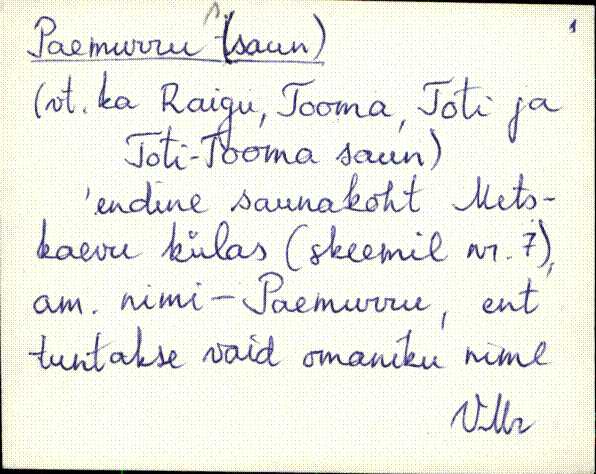 1
Paemurru (saun)
(vt. ka Raigu, Tooma, Toti ja
Toti-Tooma saun)
'endine saunakoht Mets-
kaevu külas (skeemil nr. 7),
am. nimi - Paemurru, ent
tuntakse vaid omaniku nime
VMr